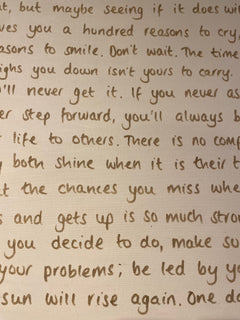 t, but maybe seeing if it does wil
ves you a hundred reasons to cry,
asons to smile. Don't wait. The time
ighs you down isn't yours to carry.
'll never get it. If you never as
er step forward, you'll always b
r life to others. There is no comp
y both shine when it is their t
t the chances you miss whe
s and gets up is so much stron
you decide to do, make su
your problems; be led by yo
sun will rise again. One da